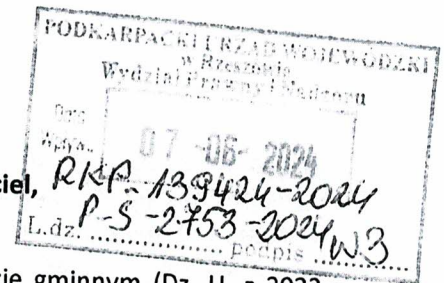 PODKARPACKI URZĄD WOJEWÓDZKI
w Rzeszowie
Wydział Prawny i Nadzoru
07 -06- 2024
ciel, RKP-139424-2024
L.dz. P-S-2753-2024
podpis
ie gminnym (Dz. U. z 2023